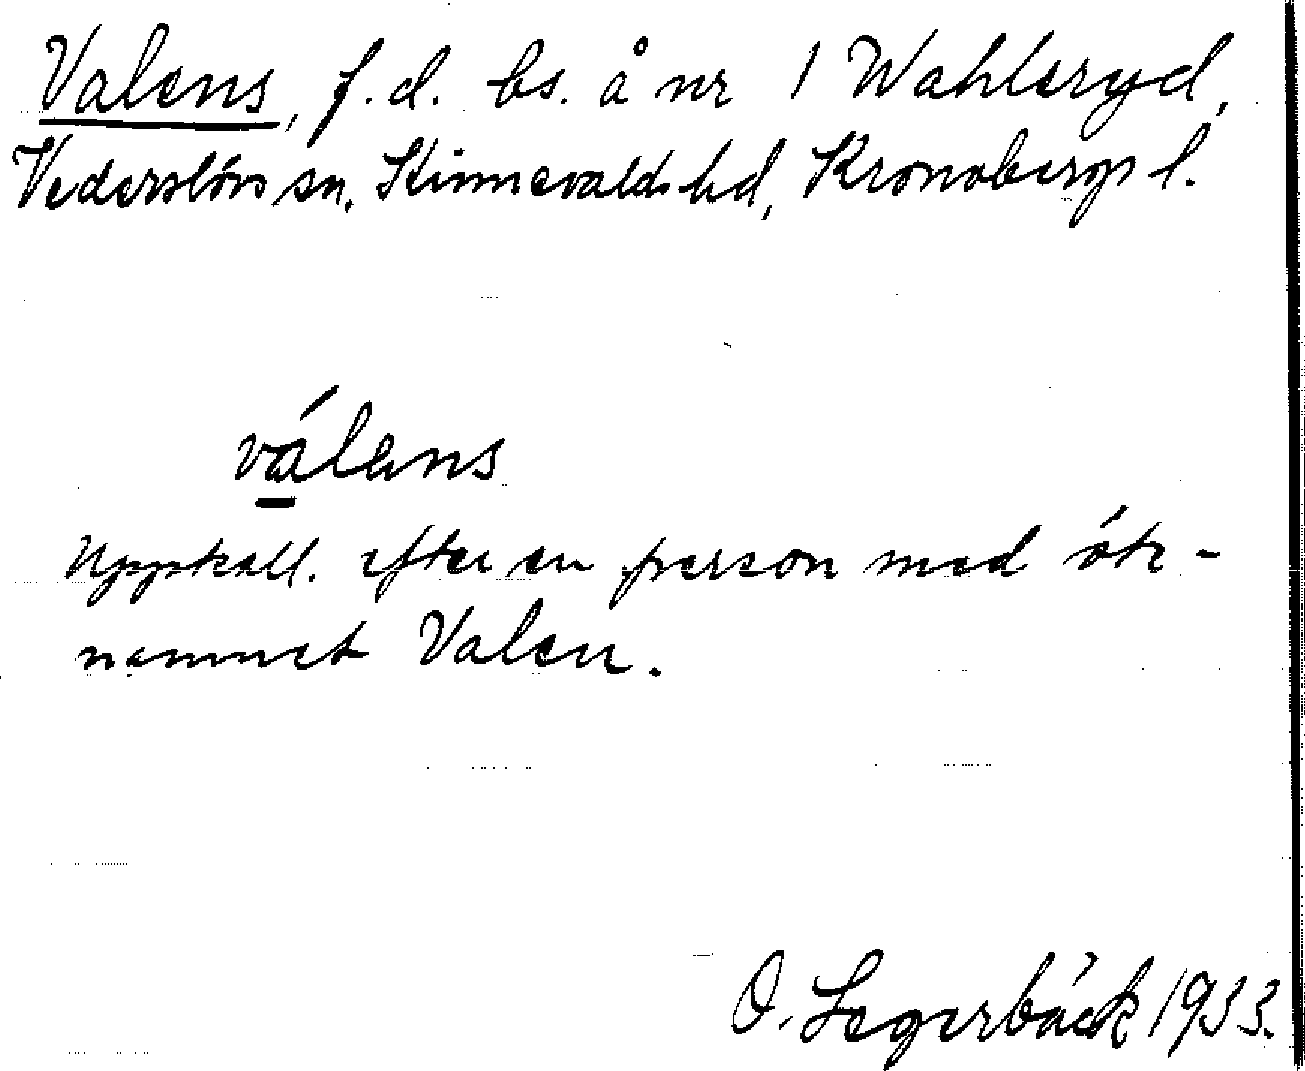 Valens, f.d. bs. å nr 1 Wahleryd,
Vederslövs sn, Kinnevalds hd, Kronobergs l.
válens
Uppkall. efter en person med ök-
namnet Valen.
O. Legerbäck 1933.